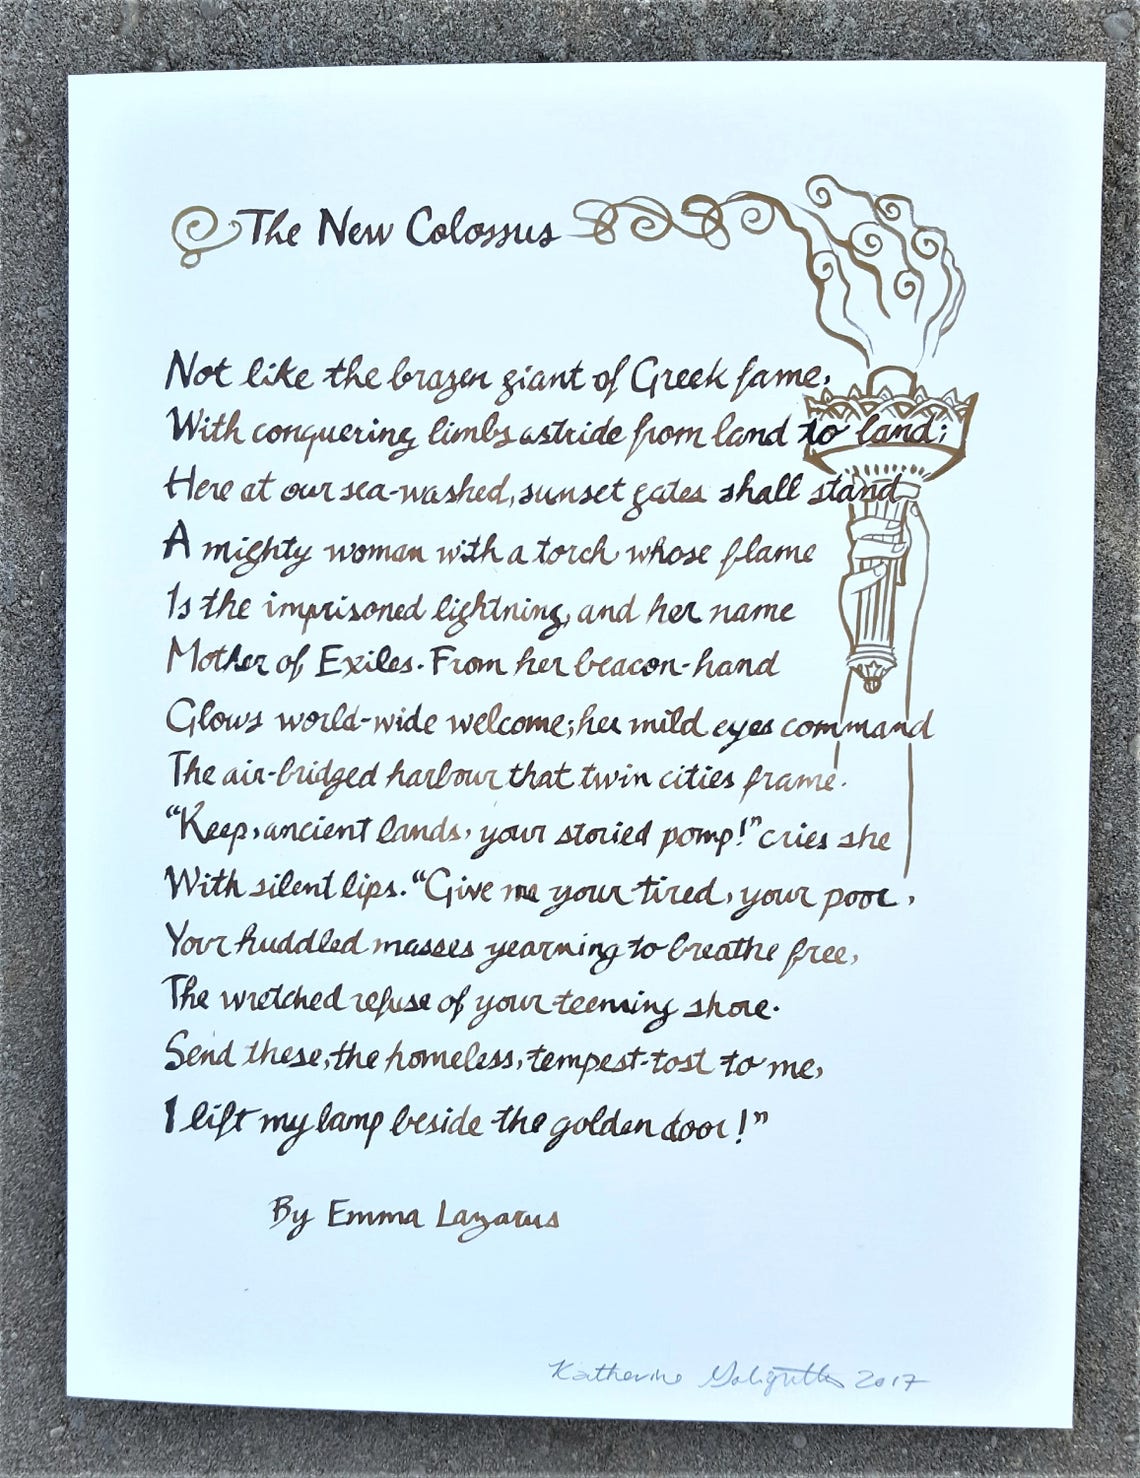 The New Colossus
Not like the brazen giant of Greek fame,
With conquering limbs astride from land to land;
Here at our sea-washed, sunset gates shall stand
A mighty woman with a torch whose flame
Is the imprisoned lightning, and her name
Mother of Exiles. From her beacon-hand
Glows world-wide welcome; her mild eyes command
The air-bridged harbour that twin cities frame.
"Keep, ancient lands, your storied pomp!" cries she
With silent lips. "Give me your tired, your poor,
Your huddled masses yearning to breathe free,
The wretched refuse of your teeming shore.
Send these, the homeless, tempest-tost to me,
I lift my lamp beside the golden door!"
By Emma Lazarus
Katherine 2017